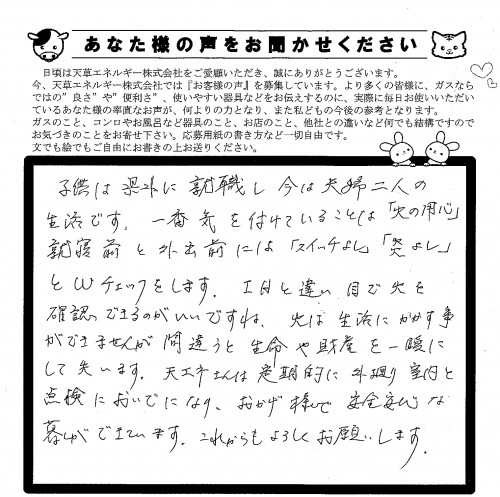 あなた様の声をお聞かせください
日頃は天草エネルギー株式会社をご愛顧いただき、誠にありがとうございます。
今、天草エネルギー株式会社では『お客様の声』を募集しています。より多くの皆様に、ガスなら
ではの”良さ”や”便利さ”、使いやすい器具などをお伝えするのに、実際に毎日お使いいただい
ているあなた様の率直なお声が、何よりの力となり、また私どもの今後の参考となります。
ガスのこと、コンロやお風呂など器具のこと、お店のこと、他社との違いなど何でも結構ですので
お気づきのことをお寄せ下さい。応募用紙の書き方など一切自由です。
文でも絵でもご自由にお書きの上お送りください。
子供は県外に就職し今は夫婦二人の
生活です。一番気を付けていることは「火の用心」
就寝前と外出前には「スイッチよし」「栓よし」
とWチェックをします。IHと違い目で火を
確認できるのがいいですね。火は生活にかかす事
ができませんが間違うと生命や財産を一瞬に
して失います。天エネさんは定期的に外廻り室内と
点検においでになり、おかげ様で安全安心な
暮しができています。これからもよろしくお願いします。